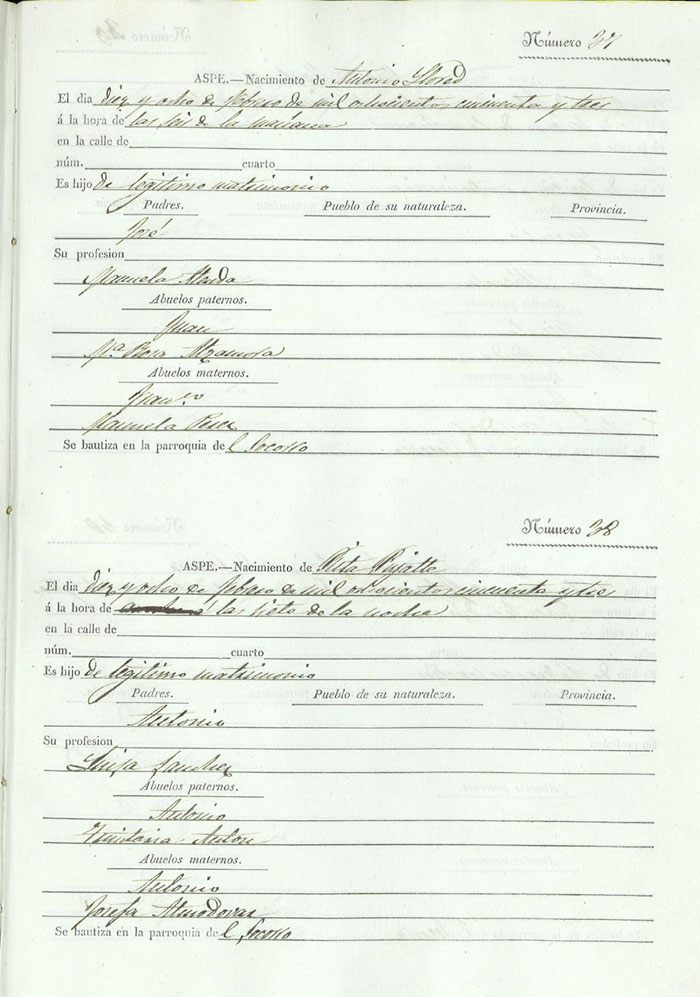 Número 37
ASPE.—Nacimiento de Antonio Llored
El dia diez y ocho de febrero de mil ochocientos cincuenta y tres
á la hora de las seis de la mañana
en la calle de
núm. cuarto
Es hijo de legitimo matrimonio
Padres. Pueblo de su naturaleza. Provincia.
José
Su profesion
Manuela
Abuelos paternos.
Juan
Mª Rosa
Abuelos maternos.
Manuela
Se bautiza en la parroquia del Socorro
Número 38
ASPE.—Nacimiento de Rita
El dia diez y ocho de febrero de mil ochocientos cincuenta y tres
á la hora de las siete de la noche
en la calle de
núm. cuarto
Es hijo de legitimo matrimonio
Padres. Pueblo de su naturaleza. Provincia.
Antonio
Su profesion
Luisa Sanchez
Abuelos paternos.
Antonio
Anton
Abuelos maternos.
Antonio
Josefa Almodovar
Se bautiza en la parroquia del Socorro